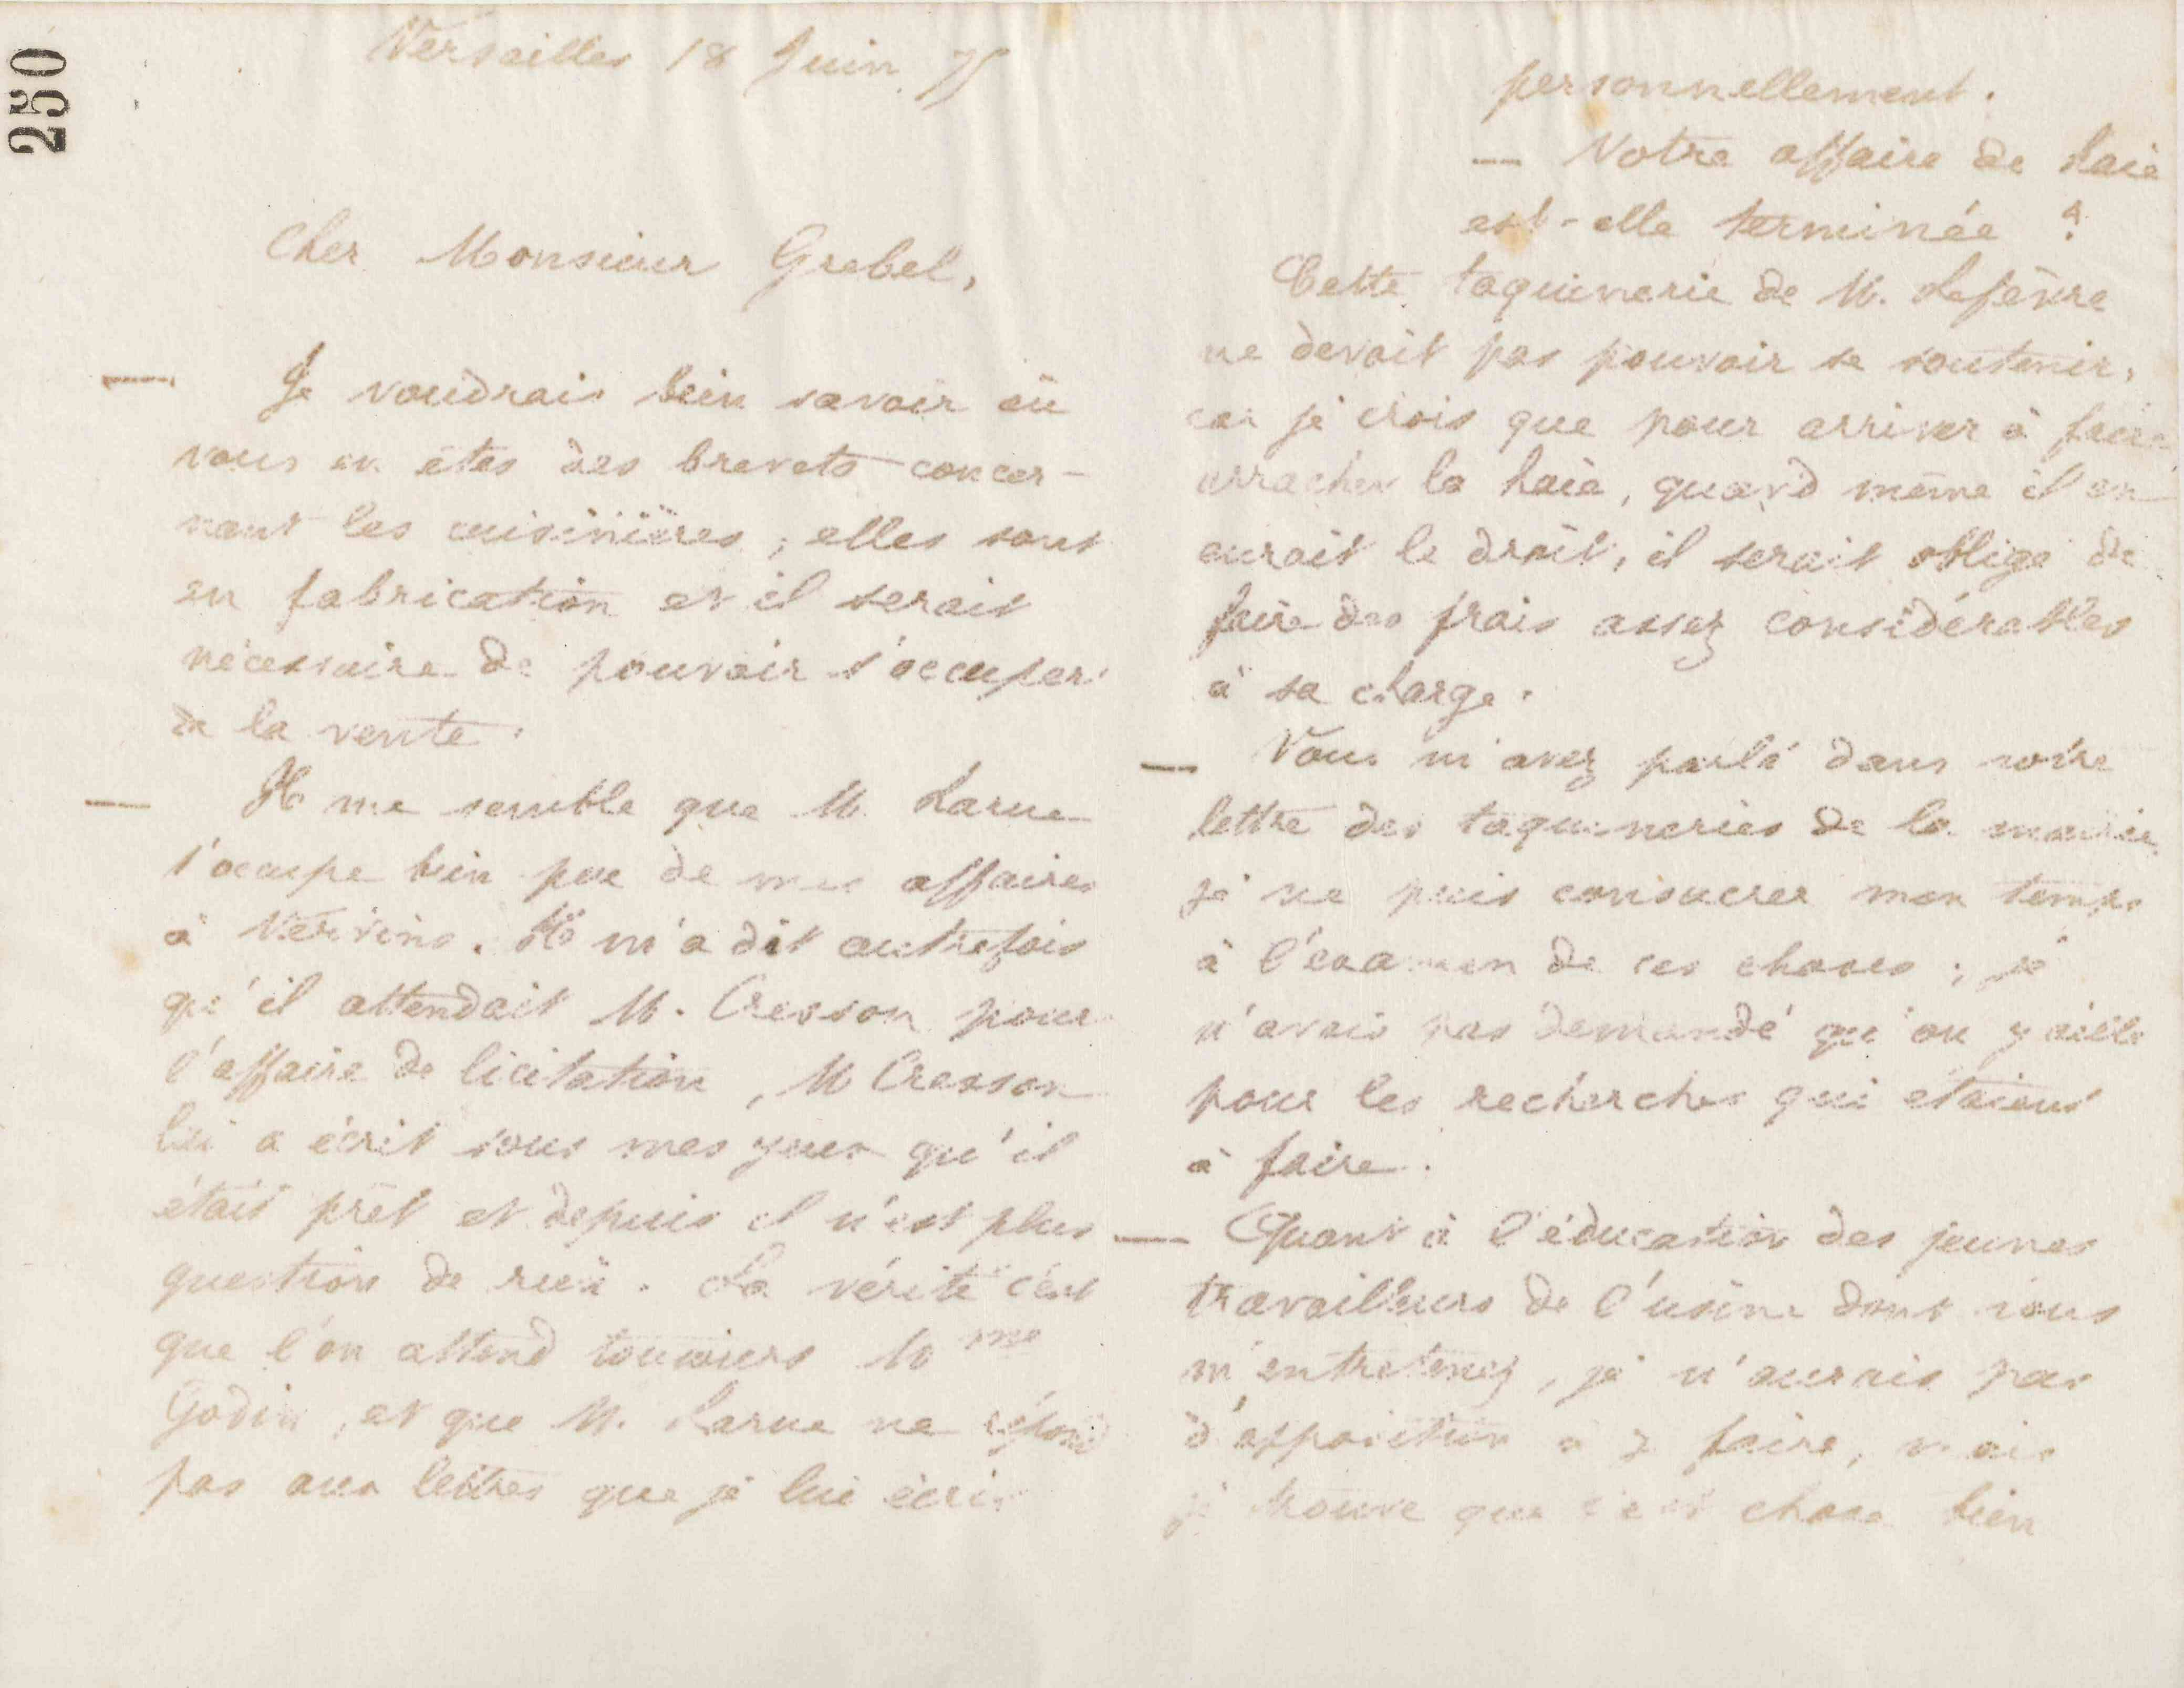 250
Versailles 18 Juin 75
Cher Monsieur Grebel,
— Je voudrais bien savoir où
vous en êtes des brevets concer-
nant les cuisinières ; elles sont
en fabrication et il serait
nécessaire de pouvoir s'occuper
de la vente.
— Il me semble que M. Larue
s'occupe bien peu de mes affaires
à Vervins. Il m'a dit autrefois
qu'il attendait M. Cresson pour
l'affaire de licitation, M Cresson
lui a écrit sous mes yeux qu'il
était prêt et depuis il n'est plus
question de rien. La vérité c'est
que l'on attend toujours Mme
Godin, et que M. Larue ne répond
pas aux lettres que je lui écris
personnellement.
— Votre affaire de haie
est-elle terminée ?
Cette taquinerie de M. Lefèvre
ne devait pas pouvoir se soutenir,
car je crois que pour arriver à faire
arracher la haie, quand même il en
aurait le droit, il serait obligé de
faire des frais assez considérables
à sa charge.
— Vous m'avez parlé dans votre
lettre des taquineries de la mairie
je ne puis consacrer mon temps
à l'examen de ces choses ; je
n'avais pas demandé qu'on y aille
pour les recherches qui étaient
à faire.
— Quant à l'éducation des jeunes
travailleurs de l'usine dont vous
m'entretenez, je n'aurais pas
d'opposition à y faire, mais
je trouve que c'est chose bien